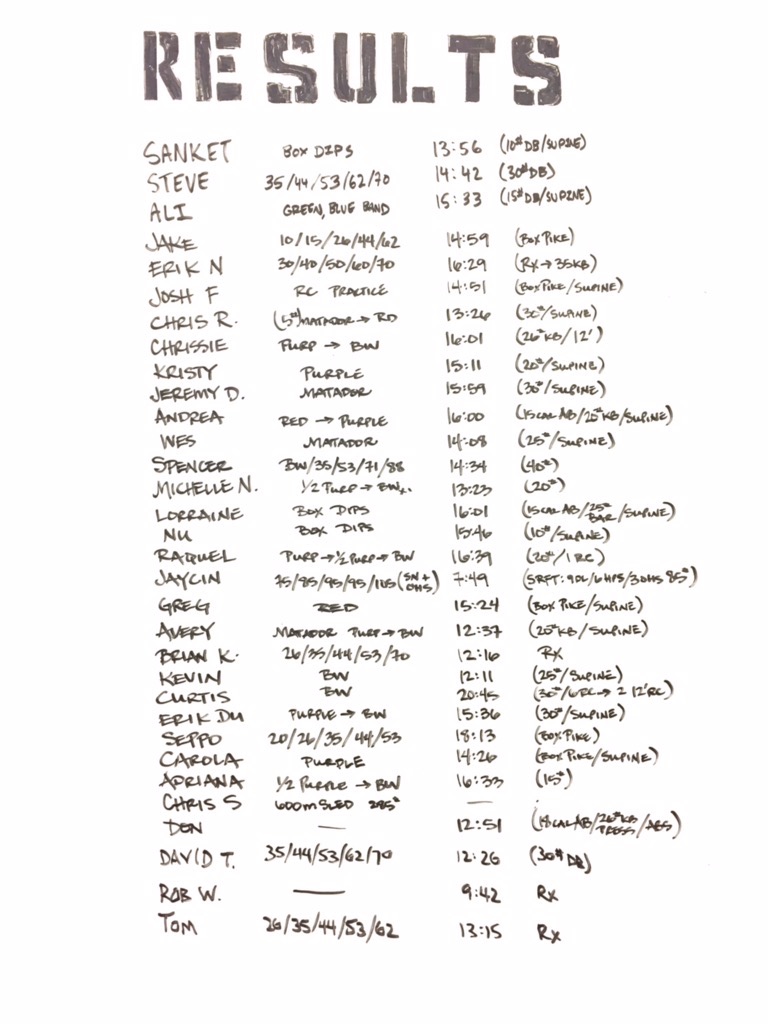 RESULTS
SANKET BOX DIPS 13:56 (10# DB/SUPINE)
STEVE 35/44/53/62/70 14:42 (30# DB)
ALI GREEN, BLUE BAND 15:33 (15# DB/SUPINE)
JAKE 10/15/26/44/62 14:59 (BOX PIKE)
ERIK N 30/40/50/60/70 16:29 (RX → 35KB)
JOSH F RC PRACTICE 14:51 (BOX PIKE/SUPINE)
CHRIS R. (5#) MATADOR → RD 13:26 (30#/SUPINE)
CHRISSIE PURP → BW 16:01 (26# KB/12')
KRISTY PURPLE 15:11 (20#/SUPINE)
JEREMY D. MATADOR 15:59 (30#/SUPINE)
ANDREA RED → PURPLE 16:00 (15CAL AB/25# KB/SUPINE)
WES MATADOR 14:08 (25#/SUPINE)
SPENCER BW/35/53/71/88 14:34 (40#)
MICHELLE N. 1/2 PURP → BW 13:23 (20#)
LORRAINE BOX DIPS 16:01 (15CAL AB/25# BAR/SUPINE)
NU BOX DIPS 15:46 (10#/SUPINE)
RAQUEL PURP → 1/2 PURP → BW 16:39 (20#/1 RC)
JAYCIN 75/85/95/95/105 (SN + OHS) 7:49 (5RFT: 9DL/6HPS/3OHS 85#)
GREG RED 15:24 (BOX PIKE/SUPINE)
AVERY MATADOR PURP → BW 12:37 (25# KB/SUPINE)
BRIAN K. 26/35/44/53/70 12:16 RX
KEVIN BW 12:11 (25#/SUPINE)
CURTIS BW 20:45 (30#/6RC → 2 12'RC)
ERIK DU PURPLE → BW 15:36 (30#/SUPINE)
SEPPO 20/26/35/44/53 18:13 (BOX PIKE)
CAROLA PURPLE 14:26 (BOX PIKE/SUPINE)
ADRIANA 1/2 PURPLE → BW 16:33 (15#)
CHRIS S 600m SLED 285# —
DON — 12:51 (18CAL AB/26# KB PRESS/ABS)
DAVID T. 35/44/53/62/70 12:26 (30# DB)
ROB W. — 9:42 RX
TOM 26/35/44/53/62 13:15 RX